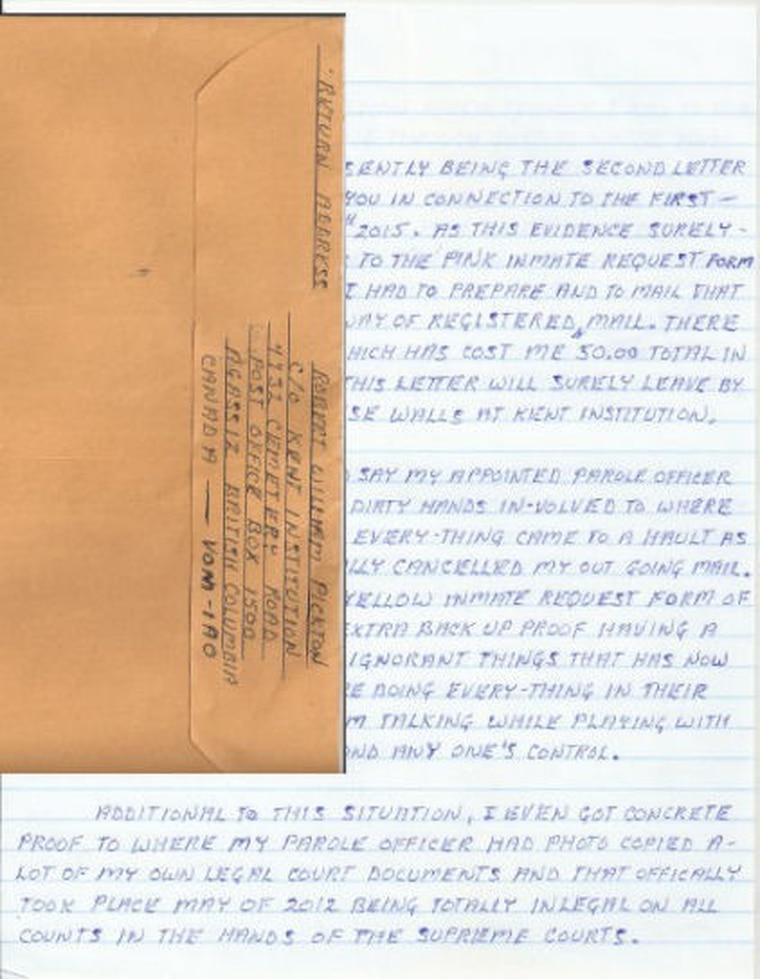 "RETURN ADDRESS
ROBERT WILLIAM PICKTON
C/O KENT INSTITUTION
4732 CEMETERY ROAD
POST OFFICE BOX 1500
AGASSIZ BRITISH COLUMBIA
CANADA — VOM-1A0
SENTLY BEING THE SECOND LETTER
YOU IN CONNECTION TO THE FIRST —
2015. AS THIS EVIDENCE SURELY -
TO THE PINK INMATE REQUEST FORM
I HAD TO PREPARE AND TO MAIL THAT
WAY OF REGISTERED, MAIL. THERE
HICH HAS COST ME 50.00 TOTAL IN
THIS LETTER WILL SURELY LEAVE BY
SE WALLS AT KENT INSTITUTION.
SAY MY APPOINTED PAROLE OFFICER
DIRTY HANDS IN-VOLVED TO WHERE
EVERY-THING CAME TO A HAULT AS
LLY CANCELLED MY OUT GOING MAIL.
YELLOW INMATE REQUEST FORM OF
EXTRA BACK UP PROOF HAVING A
IGNORANT THINGS THAT HAS NOW
RE DOING EVERY-THING IN THEIR
M TALKING WHILE PLAYING WITH
OND ANY ONE'S CONTROL.
ADDITIONAL TO THIS SITUATION, I EVEN GOT CONCRETE
PROOF TO WHERE MY PAROLE OFFICER HAD PHOTO COPIED A-
LOT OF MY OWN LEGAL COURT DOCUMENTS AND THAT OFFICALLY
TOOK PLACE MAY OF 2012 BEING TOTALLY INLEGAL ON ALL
COUNTS IN THE HANDS OF THE SUPRIEME COURTS.